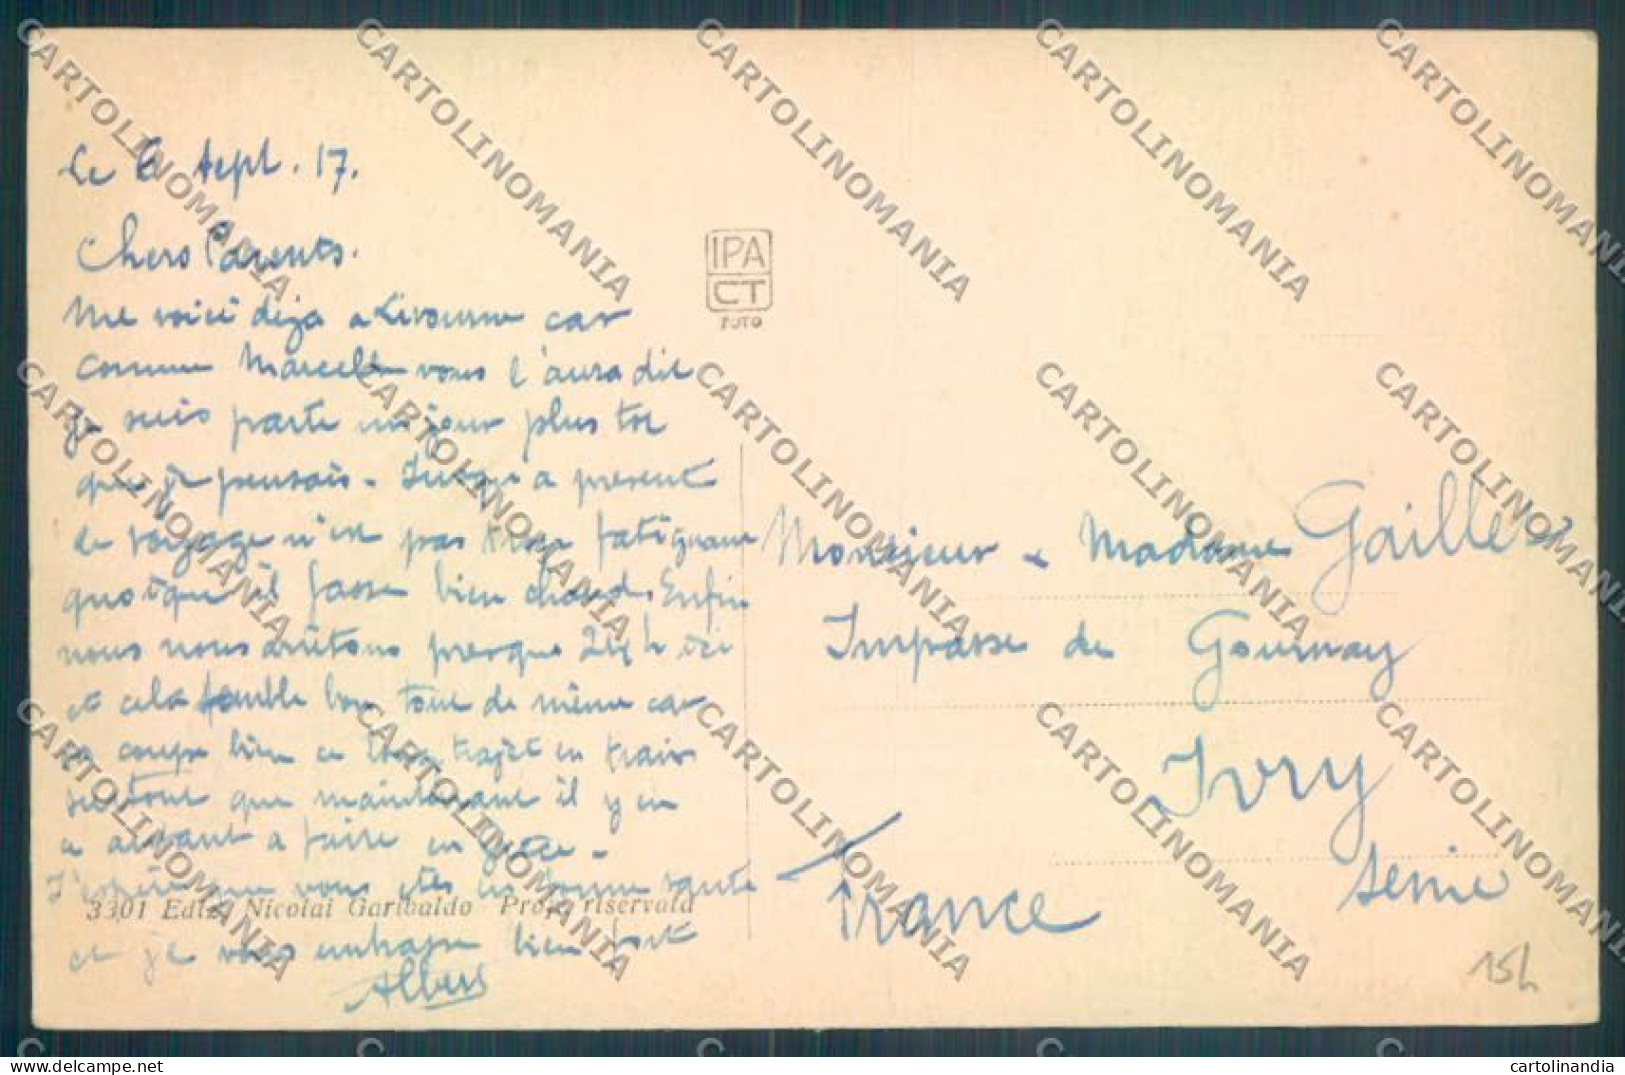 Le 6 Sept. 17.
Chers Parents.
Me voici deja a Livourne car
comme Marcelle vous l'aura dit
je suis parti un jour plus tot
que je pensais. Jusqu'a present
le voyage n'est pas trop fatiguant
quoique il fasse bien chaud. Enfin
nous nous arrêtons presque 24 h ici
et cela semble bon tout de même car
ça coupe bien ce long trajet en train
surtout que maintenant il y en
a autant a faire en Grèce.
J'espère que vous etes en bonne santé
et je vous embrasse bien fort
Albert
3301 Ediz. Nicolai Garibaldo Prop. riservata
IPA
CT
FOTO
Monsieur & Madame
Impasse de Gournay
Ivry
Seine
France
15h
CARTOLINOMANIA
cartolinandia